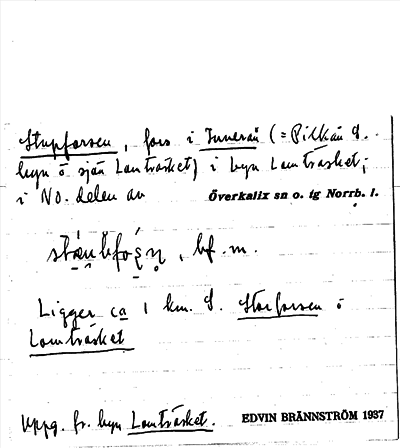 Stupforsen, fors i Inneran (=Pilkån S.
byn o sjön Lomträsket) i byn Lomträsket;
i NO. delen av Överkalix sn o. tg Norrb. l.
, bf. m.
Ligger ca 1 km. S. Storforsen o
Lomträsket
Uppg. fr. byn Lomträsket. EDVIN BRÄNNSTRÖM 1937